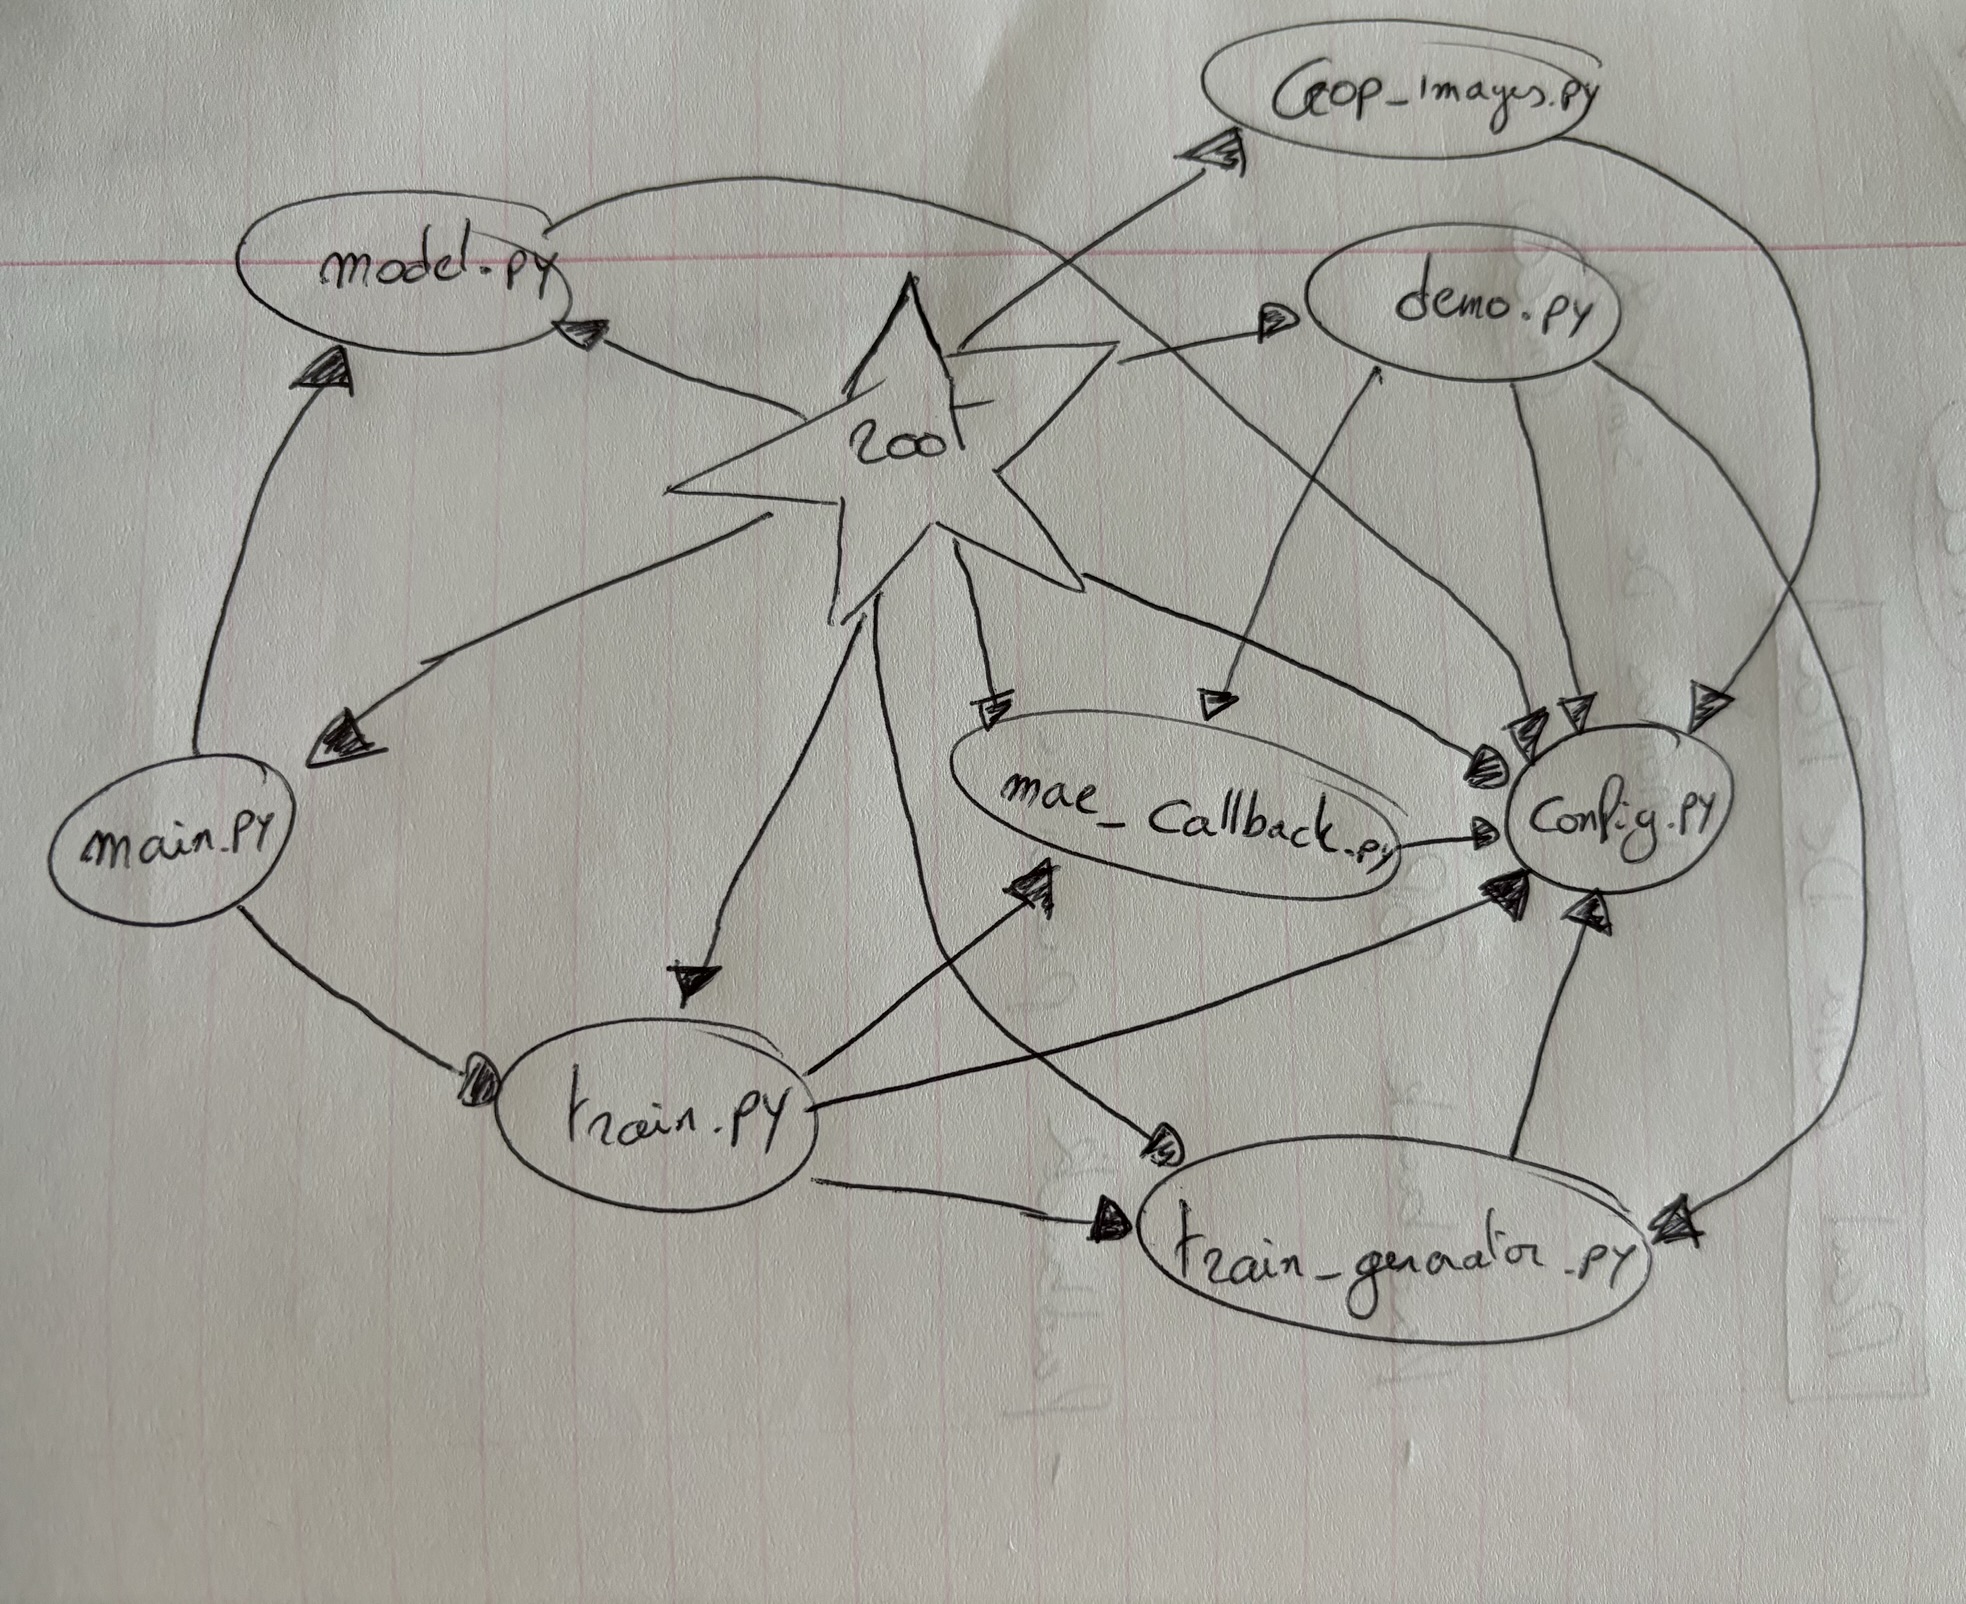 Crop_images.py
model.py
demo.py
root
main.py
mae_callback.py
config.py
train.py
train_generator.py